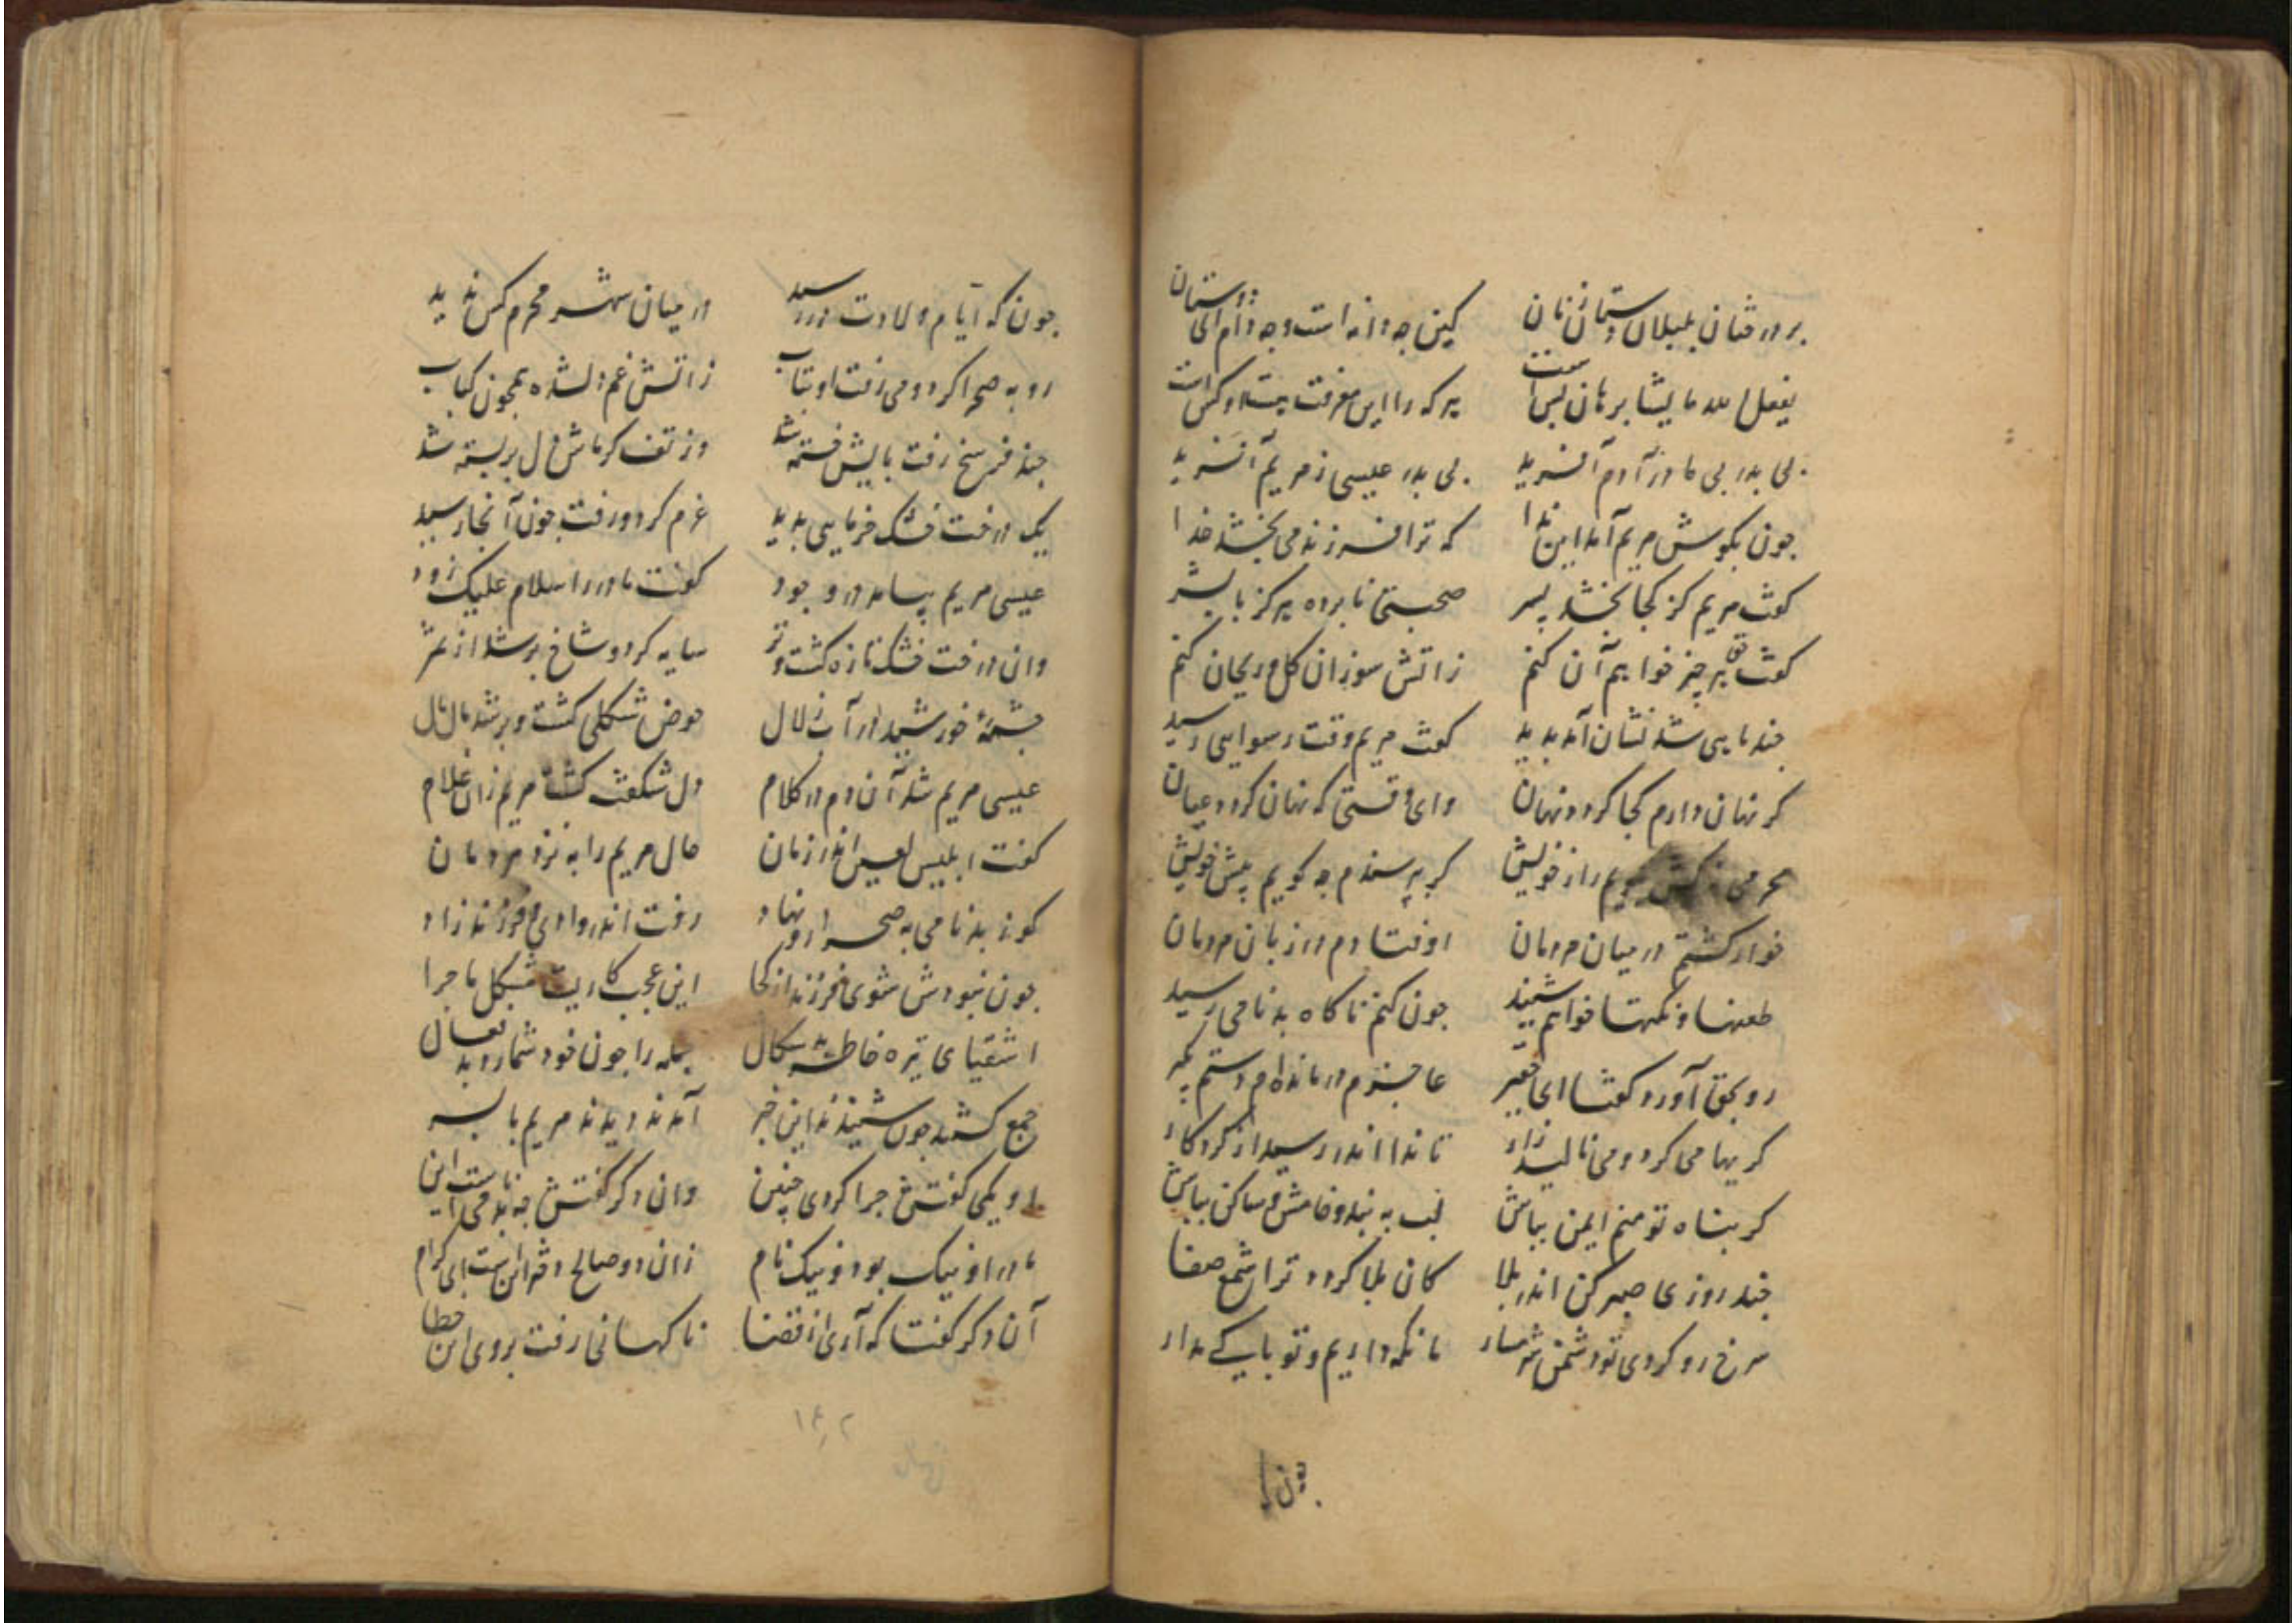 بر درختان بلبلان دستان زنان کین چه دانه است و چه دام ای دوستان
یفعل الله ما یشا برهان بس است هر که را این معرفت نیست او کس است
بی پدر بی مادر آدم آفرید بی پدر عیسی ز مریم آفرید
چون بکوش مریم آمد این ندا که ترا فرزند می بخشد خدا
کفت مریم کز کجا بخشد پسر صحبتی نابرده هرکز با بشر
کفت حق هر چیز خواهم آن کنم ز آتش سوزان کل و ریحان کنم
چند ماهی شد نشان آمد پدید کفت مریم وقت رسوایی رسید
کر نهان دارم کجا کردد نهان وای وقتی که نهان کردد عیان
محرمی کش کویم راز خویش کر بپرسندم چه کویم پیش خویش
خوار کشتم در میان مردمان اوفتادم در زبان مردمان
طعنها و نکتها خواهم شنید چون کنم ناکاه بدنامی رسید
رو بحق آورد کفتا ای خبیر عاجزم درمانده‌ام دستم بکیر
کریها می کرد و می نالید زار تا ندا اندر رسید از کردکار
کر پناه تو منم ایمن بباش لب به بند و خامش و ساکن بباش
چند روزی صبر کن اندر بلا کان بلا کردد ترا شمع صفا
سرخ رو کردی تو دشمن شرمسار ما نکه داریم و تو باکی مدار
چون که ایام ولادت در رسید در میان شهر محرم کس ندید
رو به صحرا کرد و می رفت او بتاب ز آتش غم دل شده همچون کباب
چند فرسخ رفت پایش خسته شد وز تف کرماش دل بربسته شد
یک درخت خشک خرمایی بدید عزم کرد و رفت چون آنجا رسید
عیسی مریم بیامد در وجود کفت مادر را سلام علیک زود
وان درخت خشک تازه کشت و تر سایه کرد و شاخ پر شد از ثمر
چشمۀ خورشید در آب زلال حوض شکلی کشت و پر شد مال مال
عیسی مریم شد آن دم در کلام دل شکفت کشت مریم زان غلام
کفت ابلیس لعین اندر زمان حال مریم را به نزد مردمان
کو ز بدنامی به صحرا رو نهاد رفت اندر وادی و فرزند زاد
چون نبودش شوی فرزند از کجا این عجب کاریست مشکل ماجرا
اشقیای تیره خاطر بد سکال جمله را چون خود شمارد بد فعال
جمع کشتند چون شنیدند این خبر آمدند دیدند مریم با پسر
او یکی کفتش چرا کردی چنین وان دکر کفتش چه بدنامیست این
مادر او نیک بود و نیک نام زان دو صالح دختر این است ای کرام
آن دکر کفتا که آری از قضا ناکهانی رفت بر وی این خطا
۱۶۲